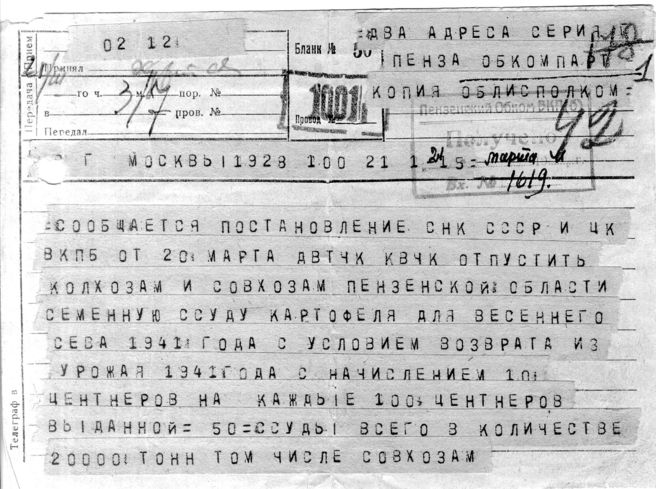 =ДВА АДРЕСА СЕРИЯ Г
ПЕНЗА ОБКОМПАРТ
КОПИЯ ОБЛИСПОЛКОМ=
02 12
Бланк № 50
Принял
го ч. м. пор. №
в пров. №
Передал
1001
Провод №
Пензенский Обком ВКП(б)
Получено
42
Г МОСКВЫ 1928 100 21 1.15=
24 марта
Вх. № 1619.
=СООБЩАЕТСЯ ПОСТАНОВЛЕНИЕ СНК СССР И ЦК
ВКПБ ОТ 20 МАРТА ДВТЧК КВЧК ОТПУСТИТЬ
КОЛХОЗАМ И СОВХОЗАМ ПЕНЗЕНСКОЙ ОБЛАСТИ
СЕМЕННУЮ ССУДУ КАРТОФЕЛЯ ДЛЯ ВЕСЕННЕГО
СЕВА 1941 ГОДА С УСЛОВИЕМ ВОЗВРАТА ИЗ
УРОЖАЯ 1941 ГОДА С НАЧИСЛЕНИЕМ 10
ЦЕНТНЕРОВ НА КАЖДЫЕ 100 ЦЕНТНЕРОВ
ВЫДАННОЙ= 50=ССУДЫ ВСЕГО В КОЛИЧЕСТВЕ
20000 ТОНН ТОМ ЧИСЛЕ СОВХОЗАМ
Телеграф в